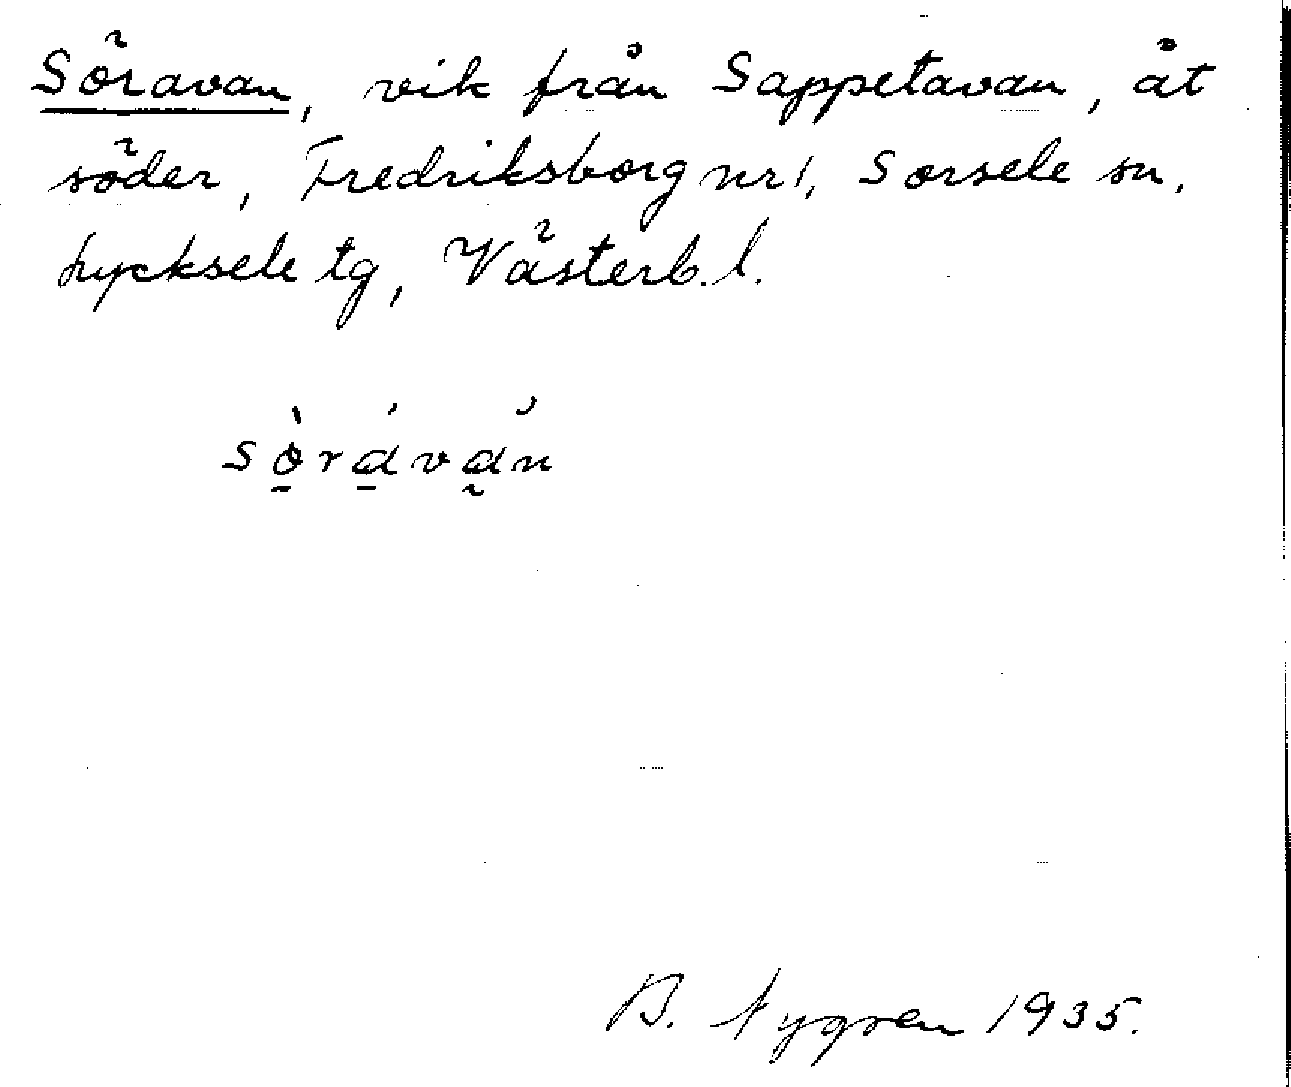 Söravan, vik från Sappetavan, åt
söder, Fredriksborg nr 1, Sorsele sn,
Lycksele tg, Västerb. l.
sò̱rá̱vá̰n
B. Nygren 1935.